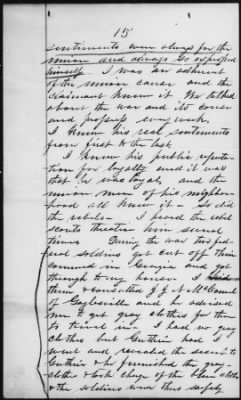 15
sentiments were always for the
union and always so expressed
himself. I was an adherent
of the union cause and the
claimant knew it. We talked
about the war and its cause
and progress every week.
I knew his real sentiments
from first to the last.
I knew his public reputa-
tion for loyalty and it was
that of a loyal, and the
union men of his neighbor-
hood all knew it - So did
the rebels - I heard the rebel
scouts threaten him several
times During the war two fed-
eral soldiers got cut off from
command in Georgia and got
through to my house. I
them & consulted J. J. A. McConnel
of Gaylesville and he advised
me to get gray clothes for them
to travel in - I had no gray
clothes but Guthrie had I
went and revealed the secret to
Guthrie & he furnished the gray
clothes & took charge of the blue clothes
& the soldiers went thus safely